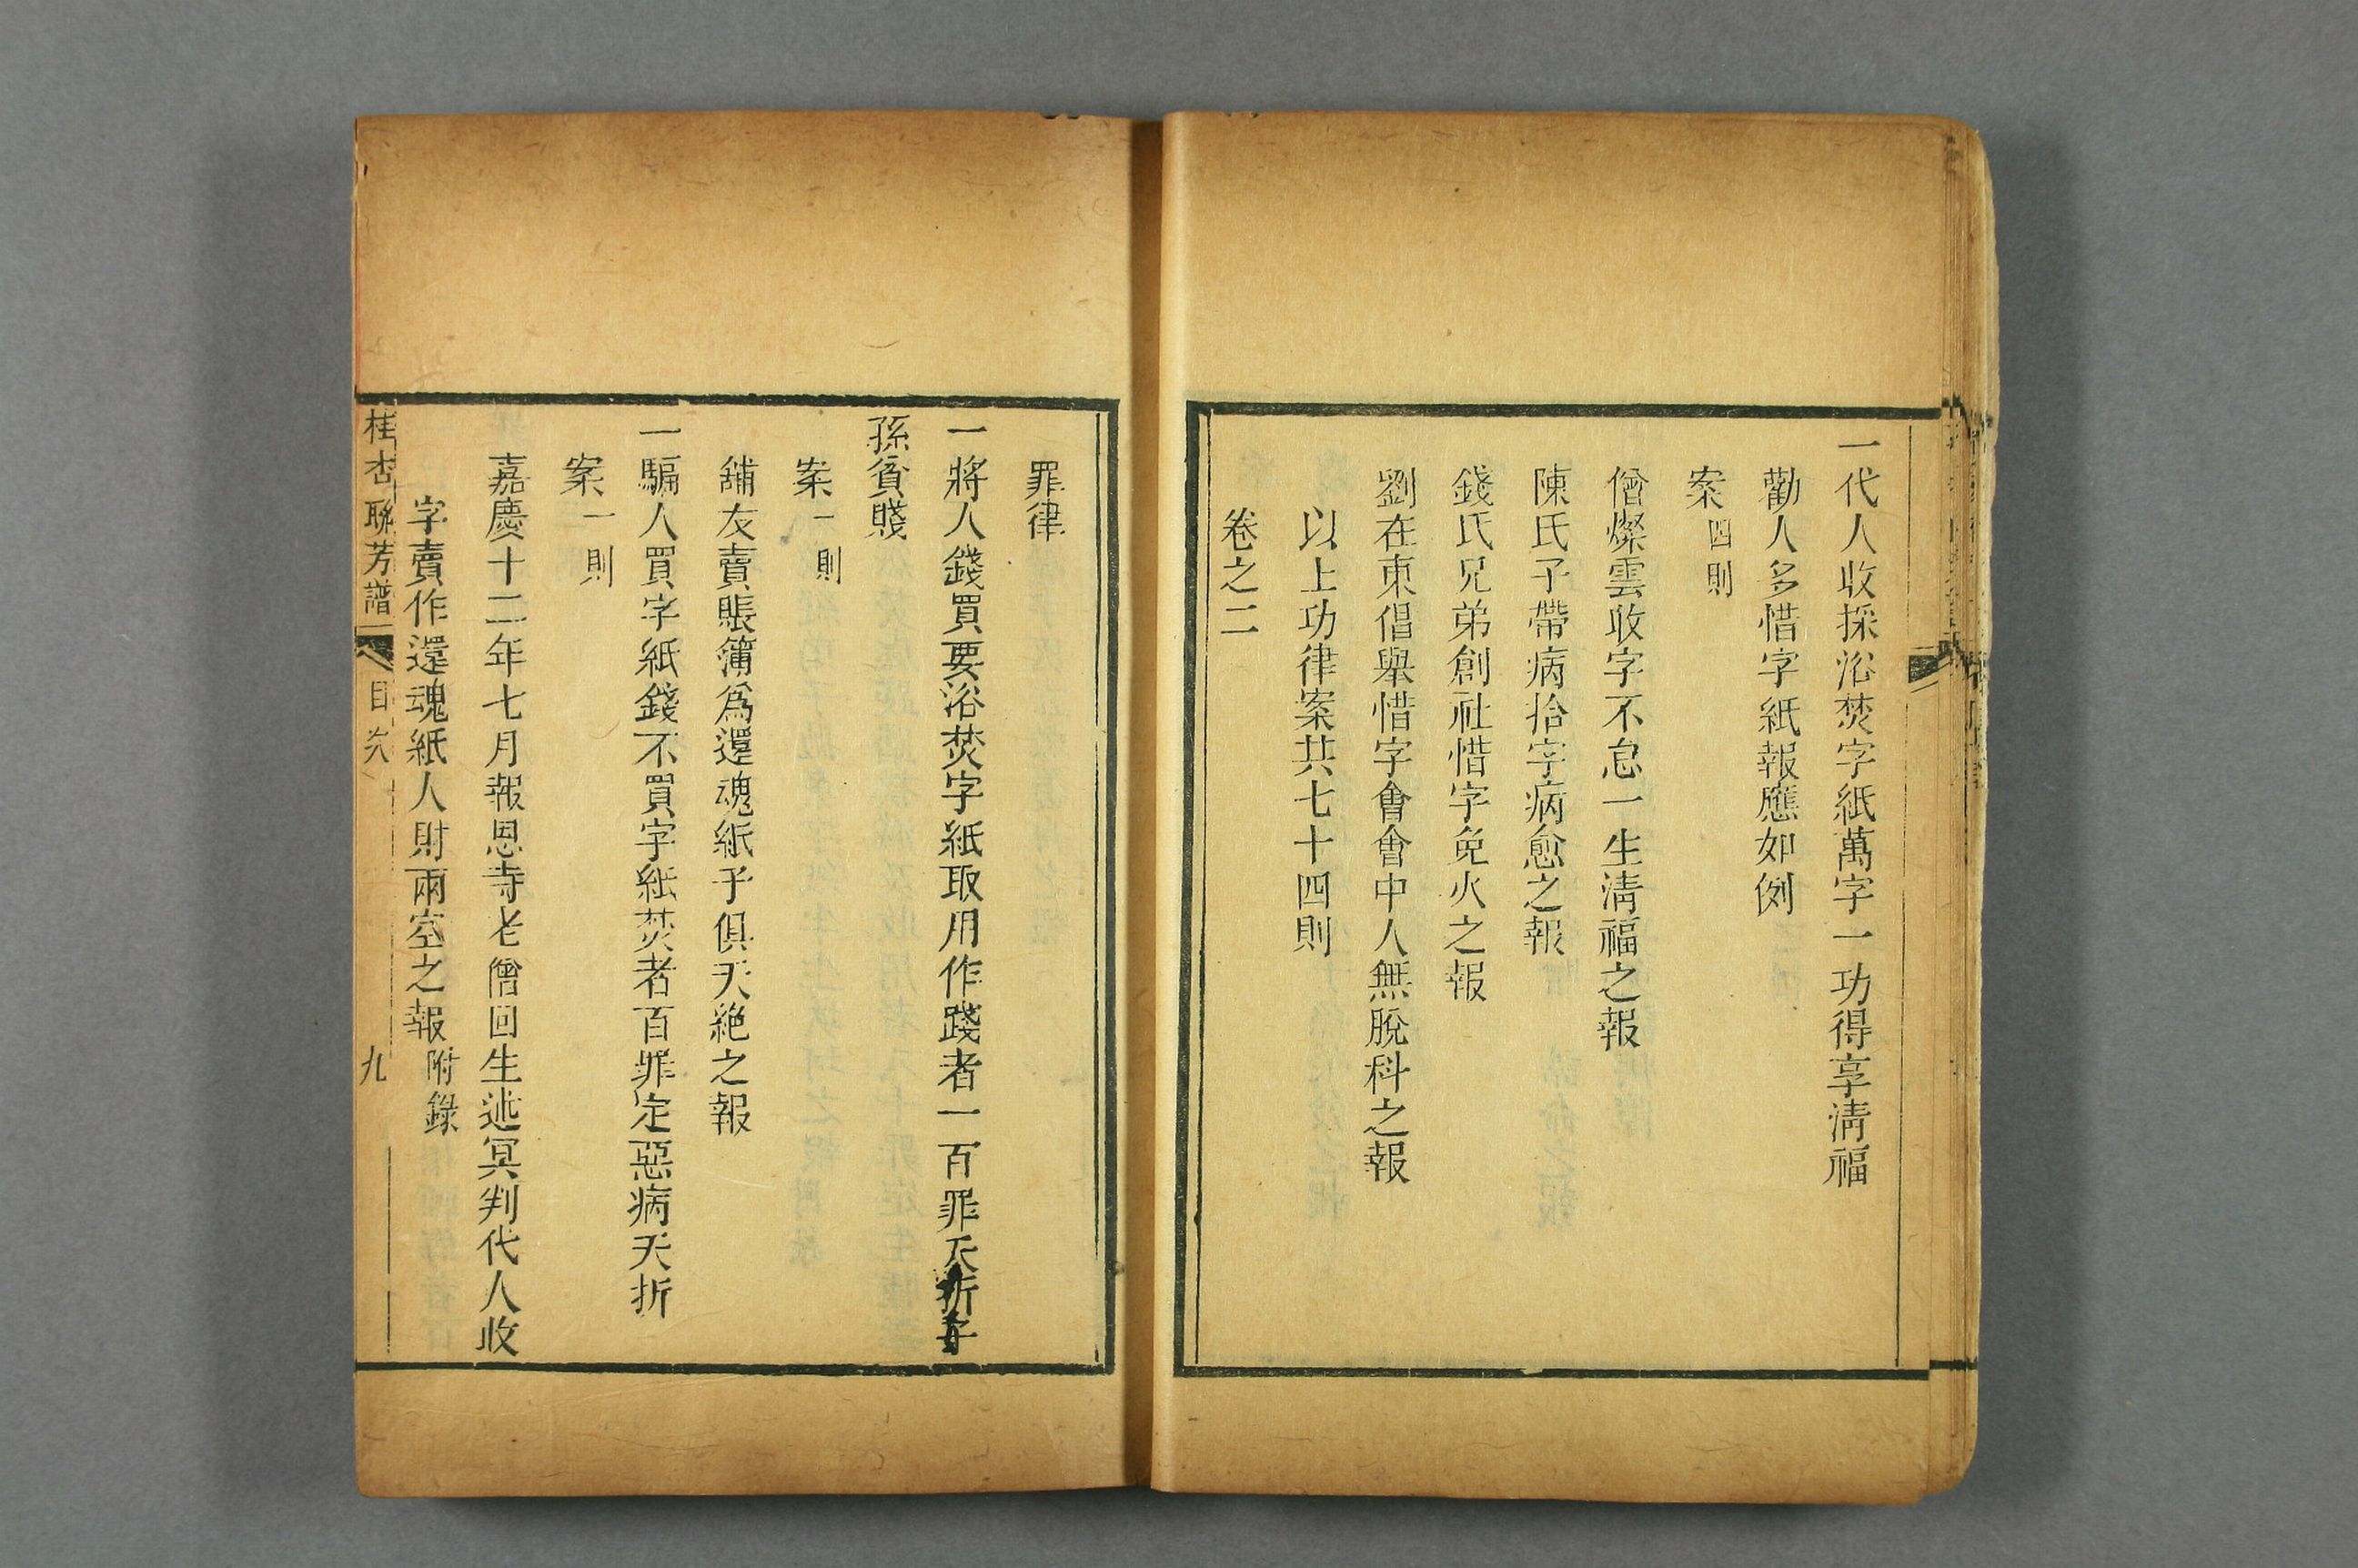 一代人收採浴焚字紙萬字一功得享清福
勸人多惜字紙報應如例
案四則
僧燦雲收字不怠一生清福之報
陳氏子帶病拾字病愈之報
錢氏兄弟創社惜字免火之報
劉在東倡舉惜字會會中人無脫科之報
以上功律案共七十四則
卷之二
罪律
一將人錢買要浴焚字紙取用作踐者一百罪夭折子
孫貧賤
案一則
舖友賣賬簿為還魂紙予俱夭絶之報
一騙人買字紙錢不買字紙焚者百罪定惡病夭折
案一則
嘉慶十二年七月報恩寺老僧回生述冥判代人收
字賣作還魂紙人財兩空之報附錄
桂杏聯芳譜 目次 九